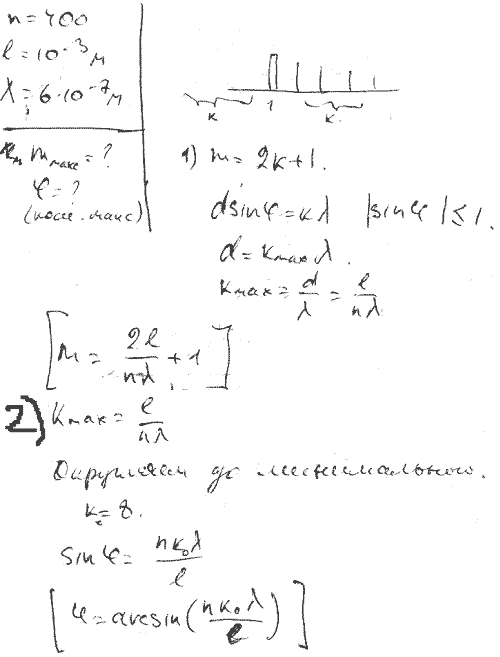 n = 400
l = 10⁻³ м
λ = 6·10⁻⁷ м
m макс = ?
φ = ?
(после. макс)
к 1 к
1) m = 2к+1.
d sin φ = кλ |sin φ| ≤ 1.
d = к max λ.
к max = d/λ = l/nλ
[m = 2l/nλ + 1]
2) К max = l/nλ
Округляем до минимального.
к₀ = 8.
sin φ = nк₀λ/l
[φ = arcsin(nк₀λ/l)]